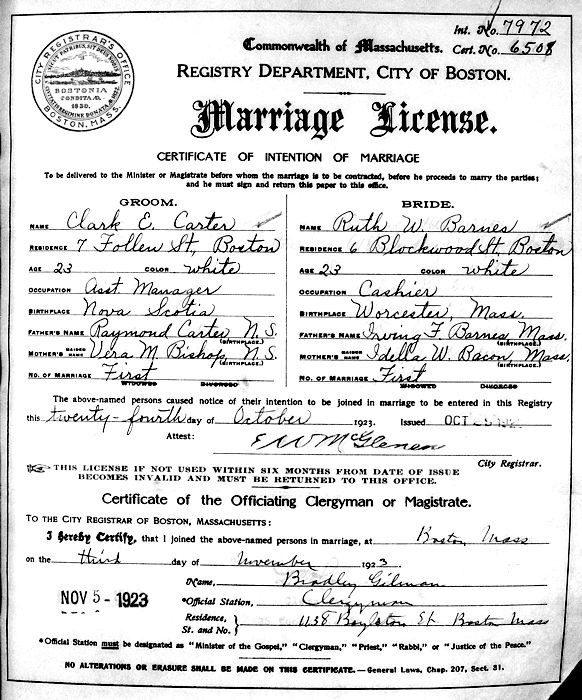 Int. No. 7972
Commonwealth of Massachusetts. Cert. No. 6508
CITY REGISTRAR'S OFFICE
BOSTONIA
CONDITA AD.
1630.
BOSTON, MASS.
REGISTRY DEPARTMENT, CITY OF BOSTON.
Marriage License.
CERTIFICATE OF INTENTION OF MARRIAGE
To be delivered to the Minister or Magistrate before whom the marriage is to be contracted, before he proceeds to marry the parties;
and he must sign and return this paper to this office.
GROOM.
NAME Clark E. Carter
RESIDENCE 7 Follen St, Boston
AGE 23 COLOR White
OCCUPATION Asst. Manager
BIRTHPLACE Nova Scotia
FATHER'S NAME Raymond Carter N.S.
(BIRTHPLACE.)
MOTHER'S MAIDEN NAME Vera M Bishop, N.S.
(BIRTHPLACE.)
NO. OF MARRIAGE First
WIDOWED DIVORCED
BRIDE.
NAME Ruth W. Barnes
RESIDENCE 6 Blackwood St, Boston
AGE 23 COLOR White
OCCUPATION Cashier
BIRTHPLACE Worcester, Mass.
FATHER'S NAME Irving F. Barnes Mass.
(BIRTHPLACE.)
MOTHER'S MAIDEN NAME Idella W. Bacon, Mass.
(BIRTHPLACE.)
NO. OF MARRIAGE First
WIDOWED DIVORCED
The above-named persons caused notice of their intention to be joined in marriage to be entered in this Registry
this twenty-fourth day of October 1923. Issued OCT
Attest: E W McGlenen
City Registrar.
THIS LICENSE IF NOT USED WITHIN SIX MONTHS FROM DATE OF ISSUE
BECOMES INVALID AND MUST BE RETURNED TO THIS OFFICE.
Certificate of the Officiating Clergyman or Magistrate.
TO THE CITY REGISTRAR OF BOSTON, MASSACHUSETTS:
I Hereby Certify, that I joined the above-named persons in marriage, at Boston, Mass
on the third day of November 1923
Name, Bradley Gilman
NOV 5-1923
*Official Station, Clergyman
Residence, St. and No. } 1138 Boylston St Boston Mass
*Official Station must be designated as "Minister of the Gospel," "Clergyman," "Priest," "Rabbi," or "Justice of the Peace."
NO ALTERATIONS OR ERASURE SHALL BE MADE ON THIS CERTIFICATE.—General Laws, Chap. 207, Sect. 31.